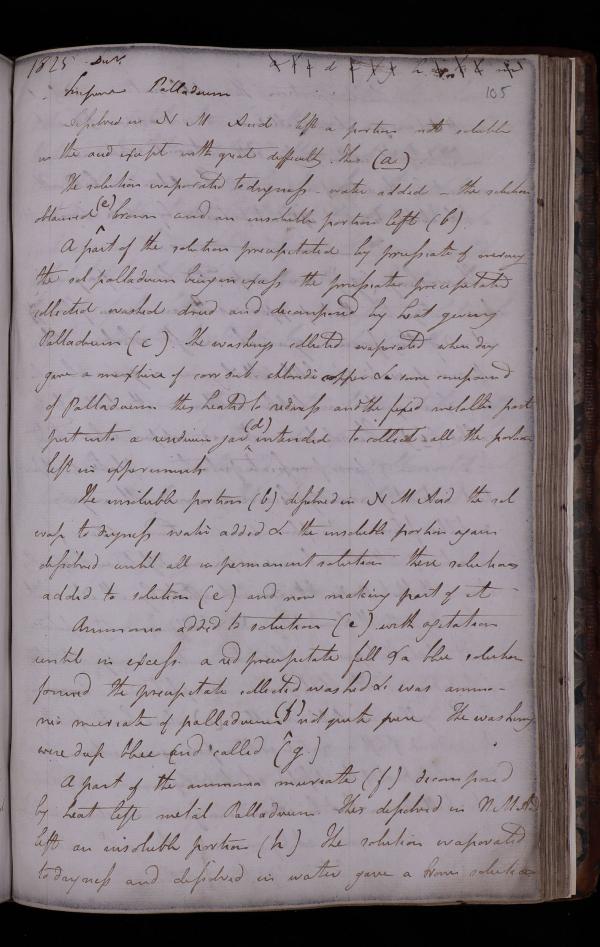 1825 Decr.
105
Impure Palladium
dissolved in N M Acid left a portion not soluble
in the acid except with great difficulty. This (a)
The solution evaporated to dryness - water added - the solution
obtained (e) brown and an insoluble portion left (b)
A part of the solution precipitated by prussiate of mercury
the sol palladium being in excess the prussiate precipitated
collected washed dried and decomposed by heat giving
Palladium (c). The washings collected evaporated when dry
gave a mixture of corr sub. chloride copper & some compound
of Palladium this heated to redness and the fixed metallic part
put into a residuum jar (d) intended to collect all the portions
left in experiments
The insoluble portion (b) dissolved in N M Acid the sol
evap to dryness water added & the insoluble portion again
dissolved until all in permanent solution these solutions
added to solution (e) and now making part of it
Ammonia added to solution (e) with agitation
until in excess a red precipitate fell & a blue solution
formed the precipitate collected washed & was ammo-
nio muriate of palladium (f) not quite pure The washings
were deep blue and called (g.)
A part of the ammonia muriate (f) decomposed
by heat left metal Palladium This dissolved in N M Acid
left an insoluble portion (h) The solution evaporated
to dryness and dissolved in water gave a brown solution